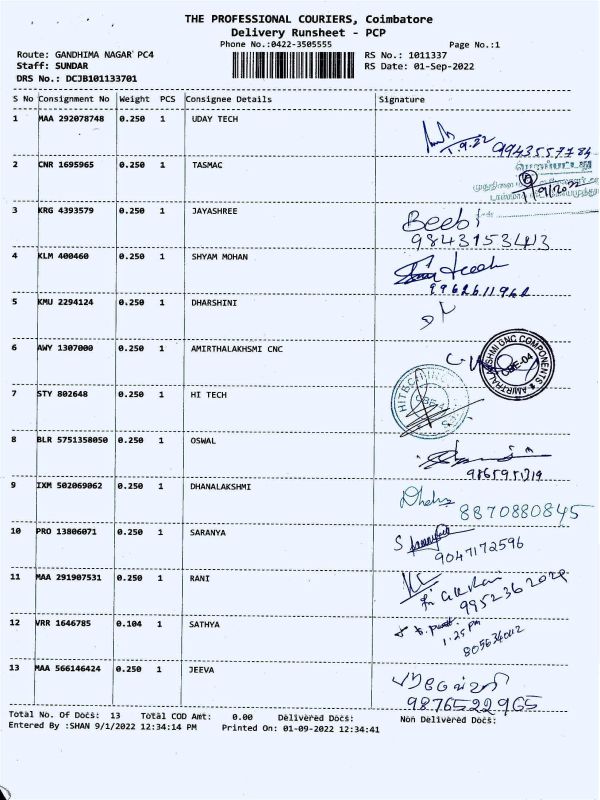 THE PROFESSIONAL COURIERS, Coimbatore
Delivery Runsheet - PCP
Phone No.:0422-3505555 Page No.:1
Route: GANDHIMA NAGAR PC4 RS No.: 1011337
Staff: SUNDAR RS Date: 01-Sep-2022
DRS No.: DCJB101133701
S No Consignment No Weight PCS Consignee Details Signature
1 MAA 292078748 0.250 1 UDAY TECH
1.9.22 9943557784
2 CNR 1695965 0.250 1 TASMAC
3 KRG 4393579 0.250 1 JAYASHREE
Beebi
9843153413
4 KLM 400460 0.250 1 SHYAM MOHAN
9962611962
5 KMU 2294124 0.250 1 DHARSHINI
6 AWY 1307000 0.250 1 AMIRTHALAKHSMI CNC
AMIRTHALAKSHMI CNC COMPONENTS
CBE-04
7 STY 802648 0.250 1 HI TECH
HITECH
8 BLR 5751358050 0.250 1 OSWAL
9 IXM 502069062 0.250 1 DHANALAKSHMI
8870880845
10 PRO 13806071 0.250 1 SARANYA
9047172596
11 MAA 291907531 0.250 1 RANI
9952362029
12 VRR 1646785 0.104 1 SATHYA
1.25 pm
13 MAA 566146424 0.250 1 JEEVA
9876522965
Total No. Of Docs: 13 Total COD Amt: 0.00 Delivered Docs: Non Delivered Docs:
Entered By :SHAN 9/1/2022 12:34:14 PM Printed On: 01-09-2022 12:34:41